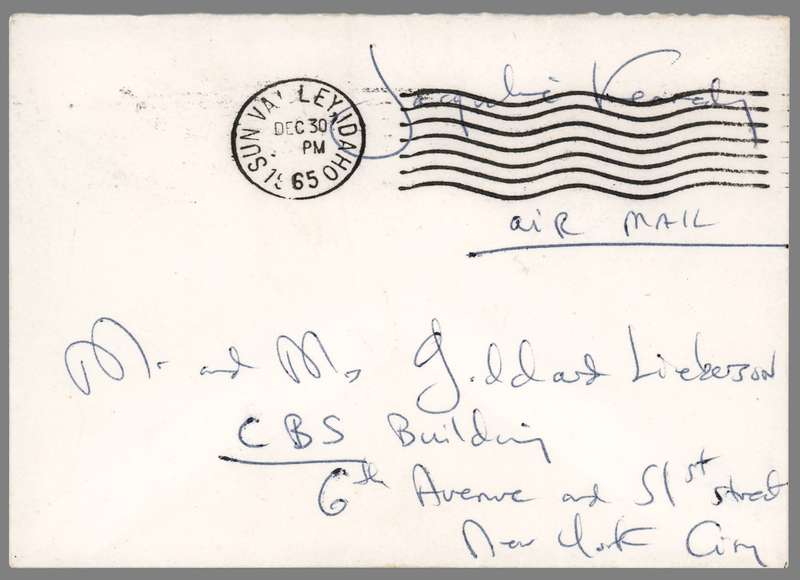 Jacqueline Kennedy
SUN VALLEY, IDAHO
DEC 30
PM
1965
AIR MAIL
Mr. and Mrs Goddard Lieberson
CBS Building
6th Avenue and 51st street
New York City